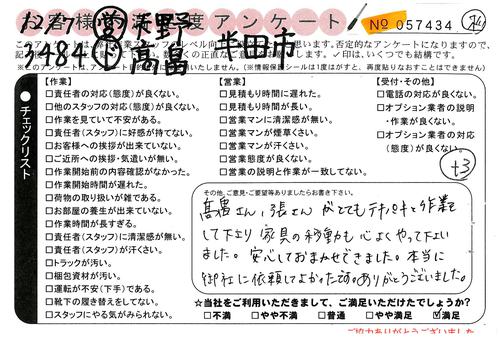 お客様満足度アンケート
12/17 営 天野 半田市
3484 作 高畠
№ 057434
【作業】
□責任者の対応(態度)が良くない。
□他のスタッフの対応(態度)が良くない。
□作業を見ていて不安がある。
□責任者(スタッフ)に好感が持てない。
□お客様への挨拶が出来ていない。
□ご近所への挨拶・気遣いが無い。
□作業開始前の内容確認がなかった。
□作業開始時間が遅れた。
□荷物の取り扱いが雑である。
□お部屋の養生が出来ていない。
□作業時間が長すぎる。
□責任者(スタッフ)に清潔感が無い。
□責任者(スタッフ)が汗くさい。
□トラックが汚い。
□梱包資材が汚い。
□運転が不安(下手)である。
□靴下の履き替えをしてない。
□スタッフにやる気がみられない。
●チェックリスト
【営業】
□見積もり時間に遅れた。
□見積もり時間が長い。
□営業マンに清潔感が無い。
□営業マンが煙草くさい。
□営業マンが汗くさい。
□営業態度が良くない。
□営業の説明と作業が一致してない。
【受付・その他】
□電話の対応が良くない。
□オプション業者の説明
・作業が良くない。
□オプション業者の対応
(態度)が良くない。
+3
その他、ご意見・ご要望等ありましたらお書き下さい。
高畠さん、張さんがとてもテキパキと作業を
して下さり家具の移動も心よくやって下さい
ました。安心しておまかせできました。本当に
御社に依頼してよかったです。ありがとうございました。
☆当社をご利用いただきまして、ご満足いただけたでしょうか?
□不満 □やや不満 □普通 □やや満足 ☑満足
ご協力ありがとうございました